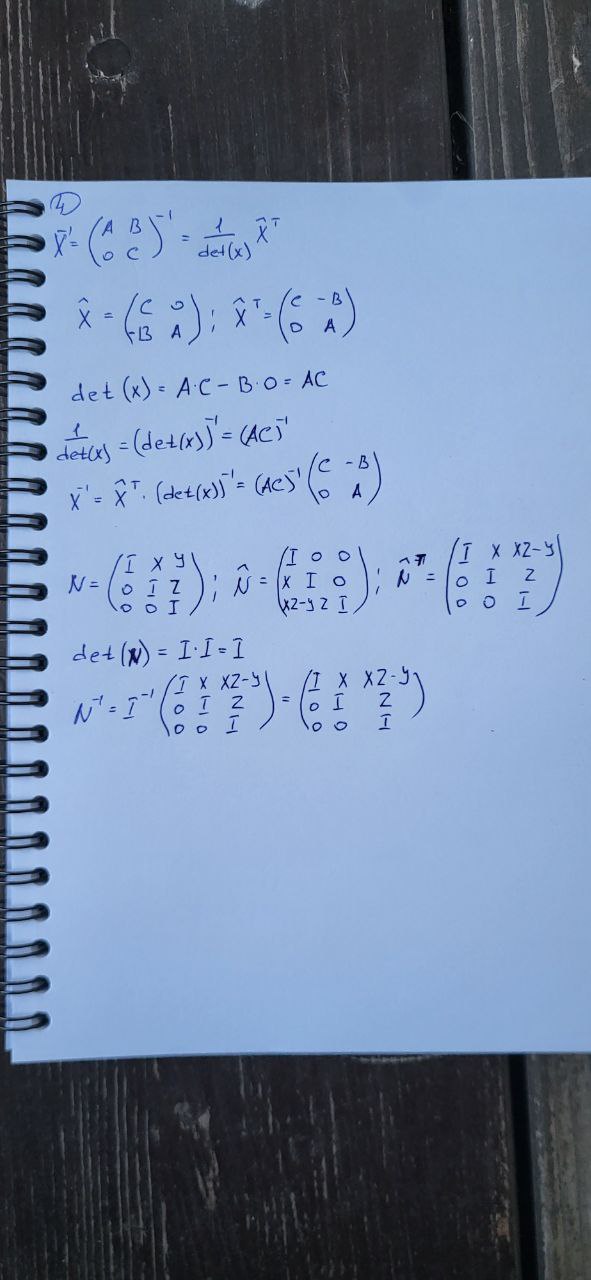 4
X⁻¹ = (A B; 0 C)⁻¹ = 1/det(x) X̂ᵀ
X̂ = (C 0; -B A); X̂ᵀ = (C -B; 0 A)
det(x) = A·C - B·0 = AC
1/det(x) = (det(x))⁻¹ = (AC)⁻¹
X⁻¹ = X̂ᵀ · (det(x))⁻¹ = (AC)⁻¹ (C -B; 0 A)
N = (I X Y; 0 I Z; 0 0 I); N̂ = (I 0 0; X I 0; XZ-Y Z I); N̂ᵀ = (I X XZ-Y; 0 I Z; 0 0 I)
det(N) = I·I = I
N⁻¹ = I⁻¹ (I X XZ-Y; 0 I Z; 0 0 I) = (I X XZ-Y; 0 I Z; 0 0 I)